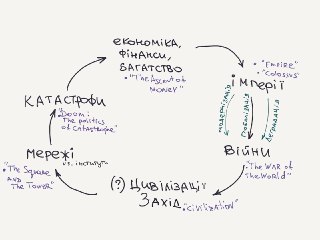 економіка,
фінанси,
багатство
• "The Ascent of
Money"
• "Empire"
• "Colossus"
імперії
модернізація
глобалізація
деградація
війни
• "The War of
the World"
(?) Цивілізації
Захід
• "Civilization"
мережі
vs.
• "The Square
and
The Tower"
катастрофи
• "Doom:
The politics
of catastrophe"